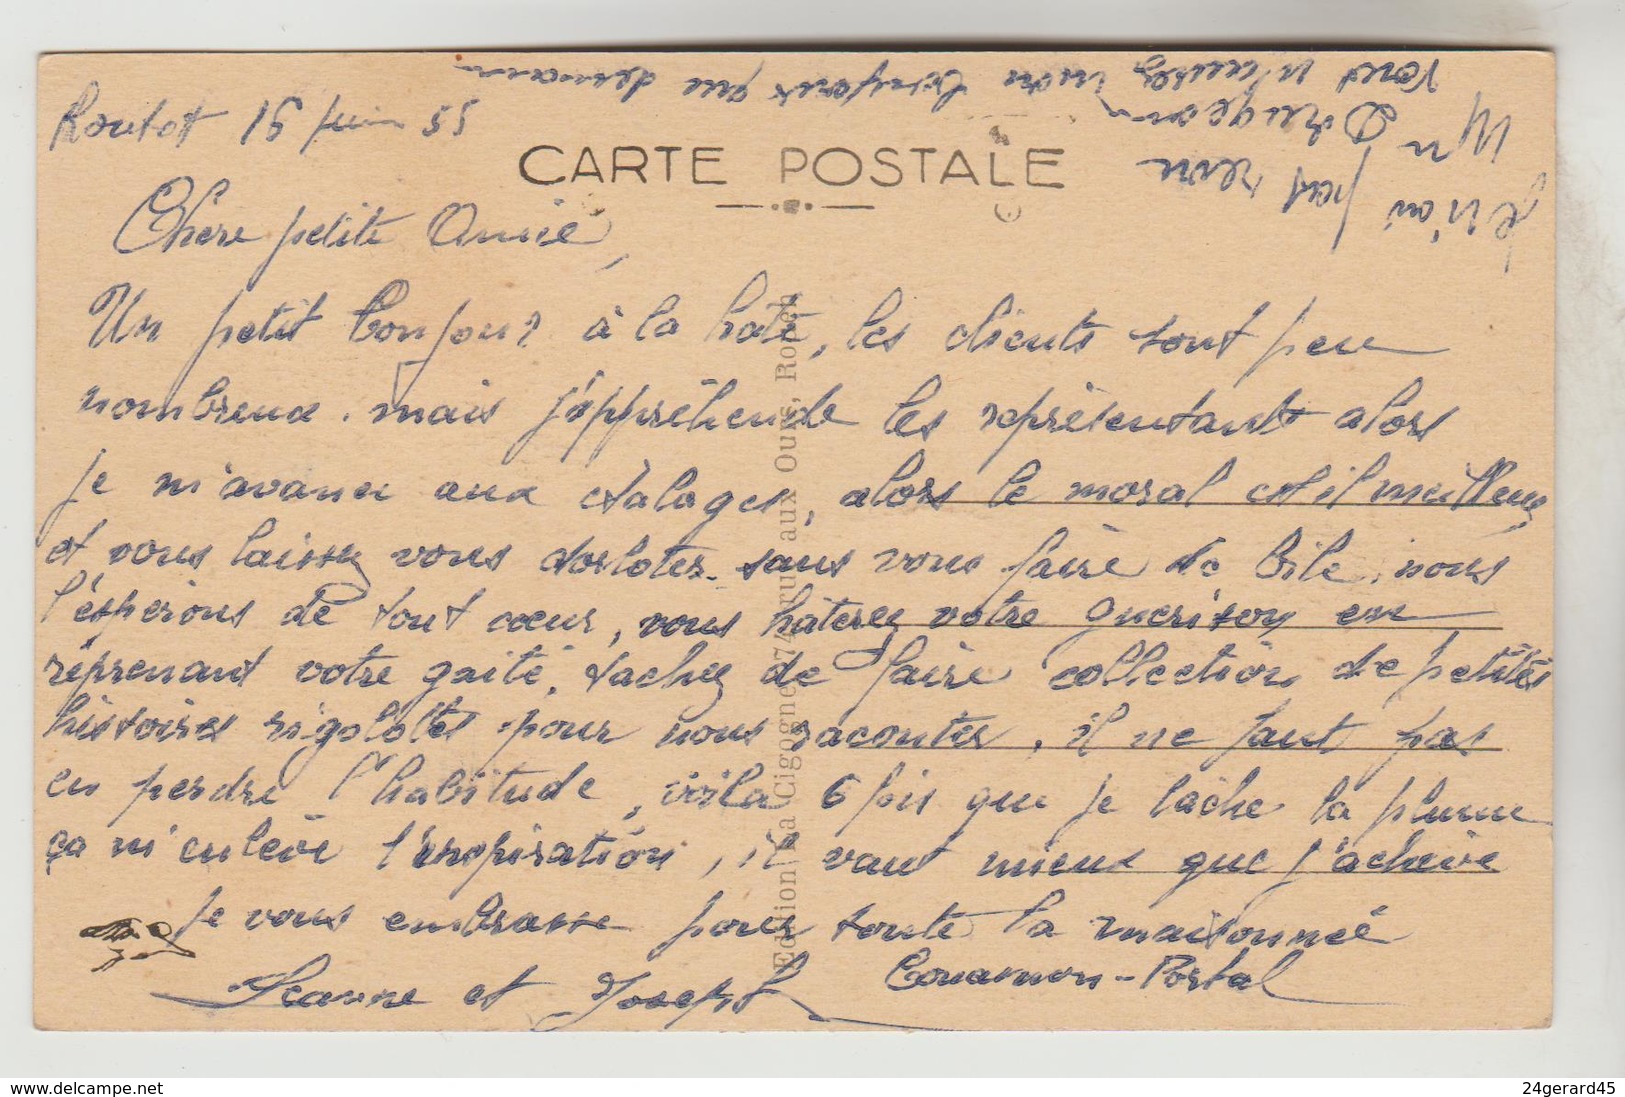 Routot 16 juin 55
CARTE POSTALE
Chère petite Amie,
Un petit bonjour à la hate, les clients sont peu
nombreux. mais j'appréhende les représentants alors
je m'avance aux étalages, alors le moral est il meilleur,
et vous laissez vous dorloter sans vous faire de bile, nous
l'espérons de tout coeur, vous hâterez votre guerison en
réprenant votre gaité, tachez de faire collection de petites
histoires rigolotes pour nous raconter, il ne faut pas
en perdre l'habitude, voila 6 fois que je lâche la plume
ça m'enlève l'inspiration, il vaut mieux que j'achève
Je vous embrasse pour toute la maisonnée
Jeanne et Joseph Couarmon-Portal
Je n'ai pas revu
Mr Drugeon
vous n'aurez mon bonjour que demain
Edition La Cigogne 74 rue aux Ours, Rouen
24gerard45
delcampe.net